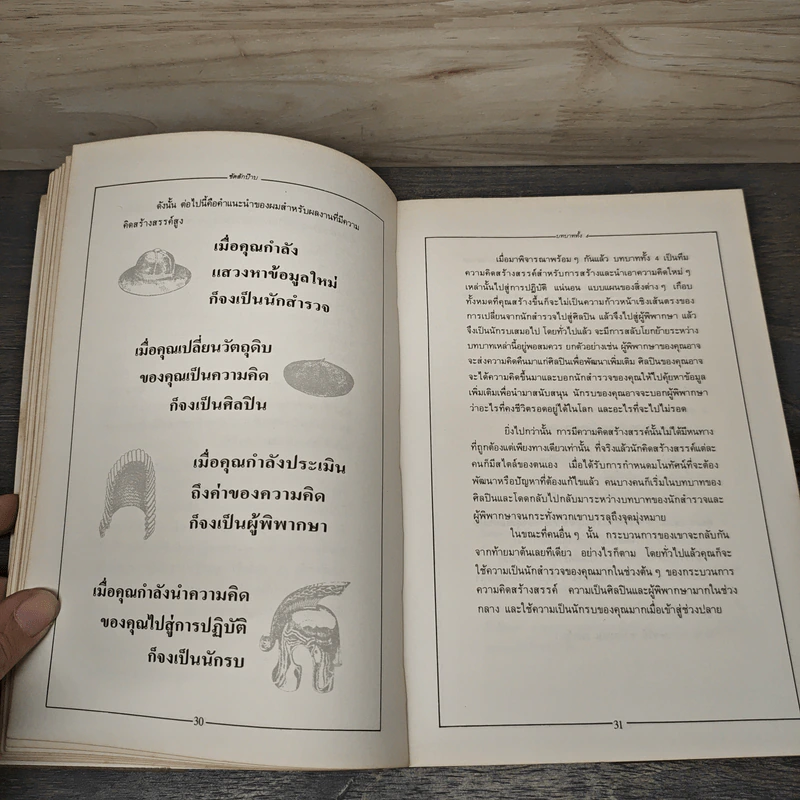 ซัดสักป้าบ
ดังนั้น ต่อไปนี้คือคำแนะนำของผมสำหรับผลงานที่มีความ
คิดสร้างสรรค์สูง
เมื่อคุณกำลัง
แสวงหาข้อมูลใหม่
ก็จงเป็นนักสำรวจ
เมื่อคุณเปลี่ยนวัตถุดิบ
ของคุณเป็นความคิด
ก็จงเป็นศิลปิน
เมื่อคุณกำลังประเมิน
ถึงค่าของความคิด
ก็จงเป็นผู้พิพากษา
เมื่อคุณกำลังนำความคิด
ของคุณไปสู่การปฏิบัติ
ก็จงเป็นนักรบ
30
บทบาททั้ง 4
เมื่อมาพิจารณาพร้อมๆ กันแล้ว บทบาททั้ง 4 เป็นทีม
ความคิดสร้างสรรค์สำหรับการสร้างและนำเอาความคิดใหม่ๆ
เหล่านั้นไปสู่การปฏิบัติ แน่นอน แบบแผนของสิ่งต่างๆ เกือบ
ทั้งหมดที่คุณสร้างขึ้นก็จะไม่เป็นความก้าวหน้าเชิงเส้นตรงของ
การเปลี่ยนจากนักสำรวจไปสู่ศิลปิน แล้วจึงไปสู่ผู้พิพากษา แล้ว
จึงเป็นนักรบเสมอไป โดยทั่วไปแล้ว จะมีการสลับโยกย้ายระหว่าง
บทบาทเหล่านี้อยู่พอสมควร ยกตัวอย่างเช่น ผู้พิพากษาของคุณอาจ
จะส่งความคิดคืนมาแก่ศิลปินเพื่อพัฒนาเพิ่มเติม ศิลปินของคุณอาจ
จะได้ความคิดขึ้นมาและบอกนักสำรวจของคุณให้ไปคุ้ยหาข้อมูล
เพิ่มเติมเพื่อนำมาสนับสนุน นักรบของคุณอาจจะบอกผู้พิพากษา
ว่าอะไรที่คงชีวิตรอดอยู่ได้ในโลก และอะไรที่จะไปไม่รอด
ยิ่งไปกว่านั้น การมีความคิดสร้างสรรค์นั้นไม่ได้มีหนทาง
ที่ถูกต้องแต่เพียงทางเดียวเท่านั้น ที่จริงแล้วนักคิดสร้างสรรค์แต่ละ
คนก็มีสไตล์ของตนเอง เมื่อได้รับการกำหนดมโนทัศน์ที่จะต้อง
พัฒนาหรือปัญหาที่ต้องแก้ไขแล้ว คนบางคนก็เริ่มในบทบาทของ
ศิลปินและโดดกลับไปกลับมาระหว่างบทบาทของนักสำรวจและ
ผู้พิพากษาจนกระทั่งพวกเขาบรรลุถึงจุดมุ่งหมาย
ในขณะที่คนอื่นๆ นั้น กระบวนการของเขาจะกลับกัน
จากท้ายมาต้นเลยทีเดียว อย่างไรก็ตาม โดยทั่วไปแล้วคุณก็จะ
ใช้ความเป็นนักสำรวจของคุณมากในช่วงต้นๆ ของกระบวนการ
ความคิดสร้างสรรค์ ความเป็นศิลปินและผู้พิพากษามากในช่วง
กลาง และใช้ความเป็นนักรบของคุณมากเมื่อเข้าสู่ช่วงปลาย
31